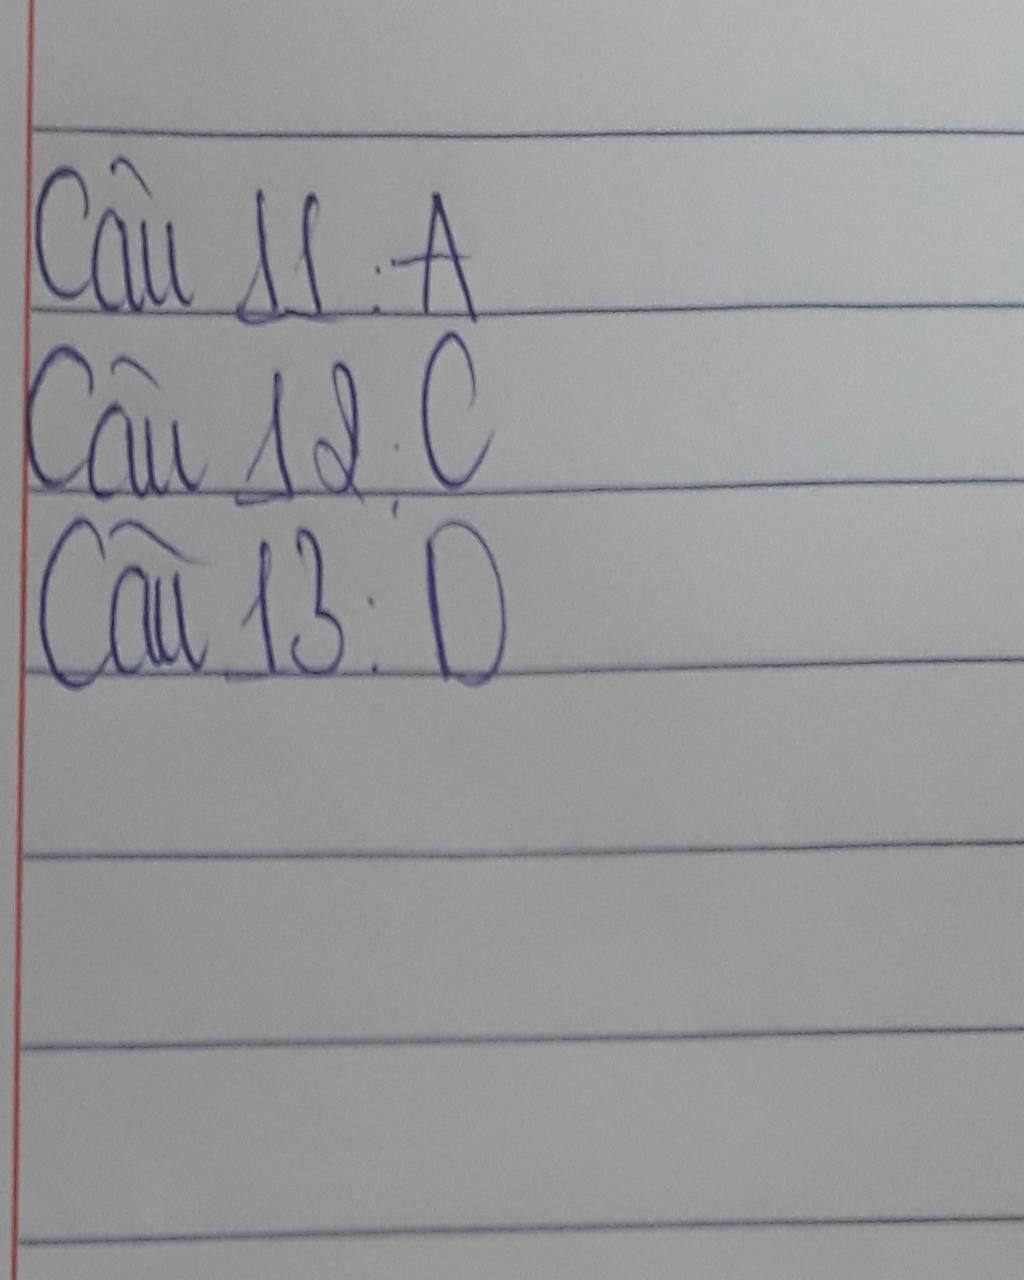 Câu 11: A
Câu 12: C
Câu 13: D